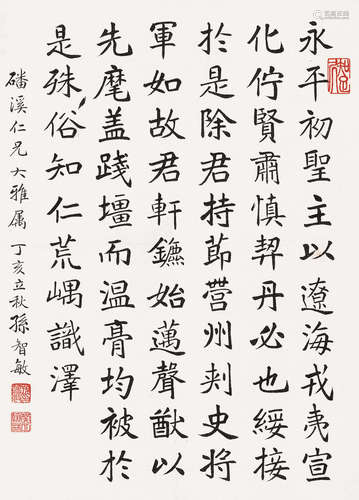 永平初聖主以遼海戎夷宣
化佇賢肅慎契丹必也綏接
於是除君持節營州刺史將
軍如故君軒鑣始邁聲猷以
先麾蓋踐壃而温膏均被於
是殊俗知仁荒嵎識澤
磻溪仁兄大雅属 丁亥立秋孫智敏